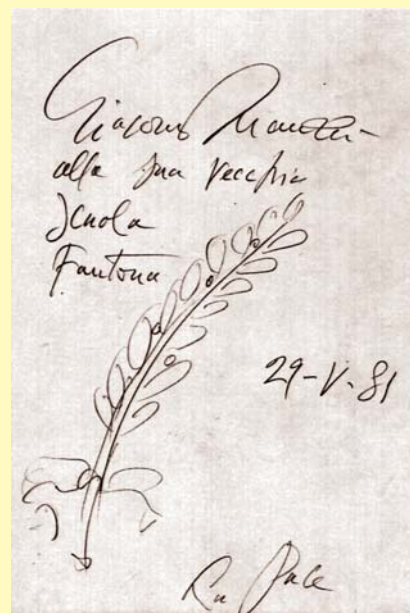 Giacomo Manzù
alla sua vecchia
Scuola
Fantoni
29-V-81
La Pace